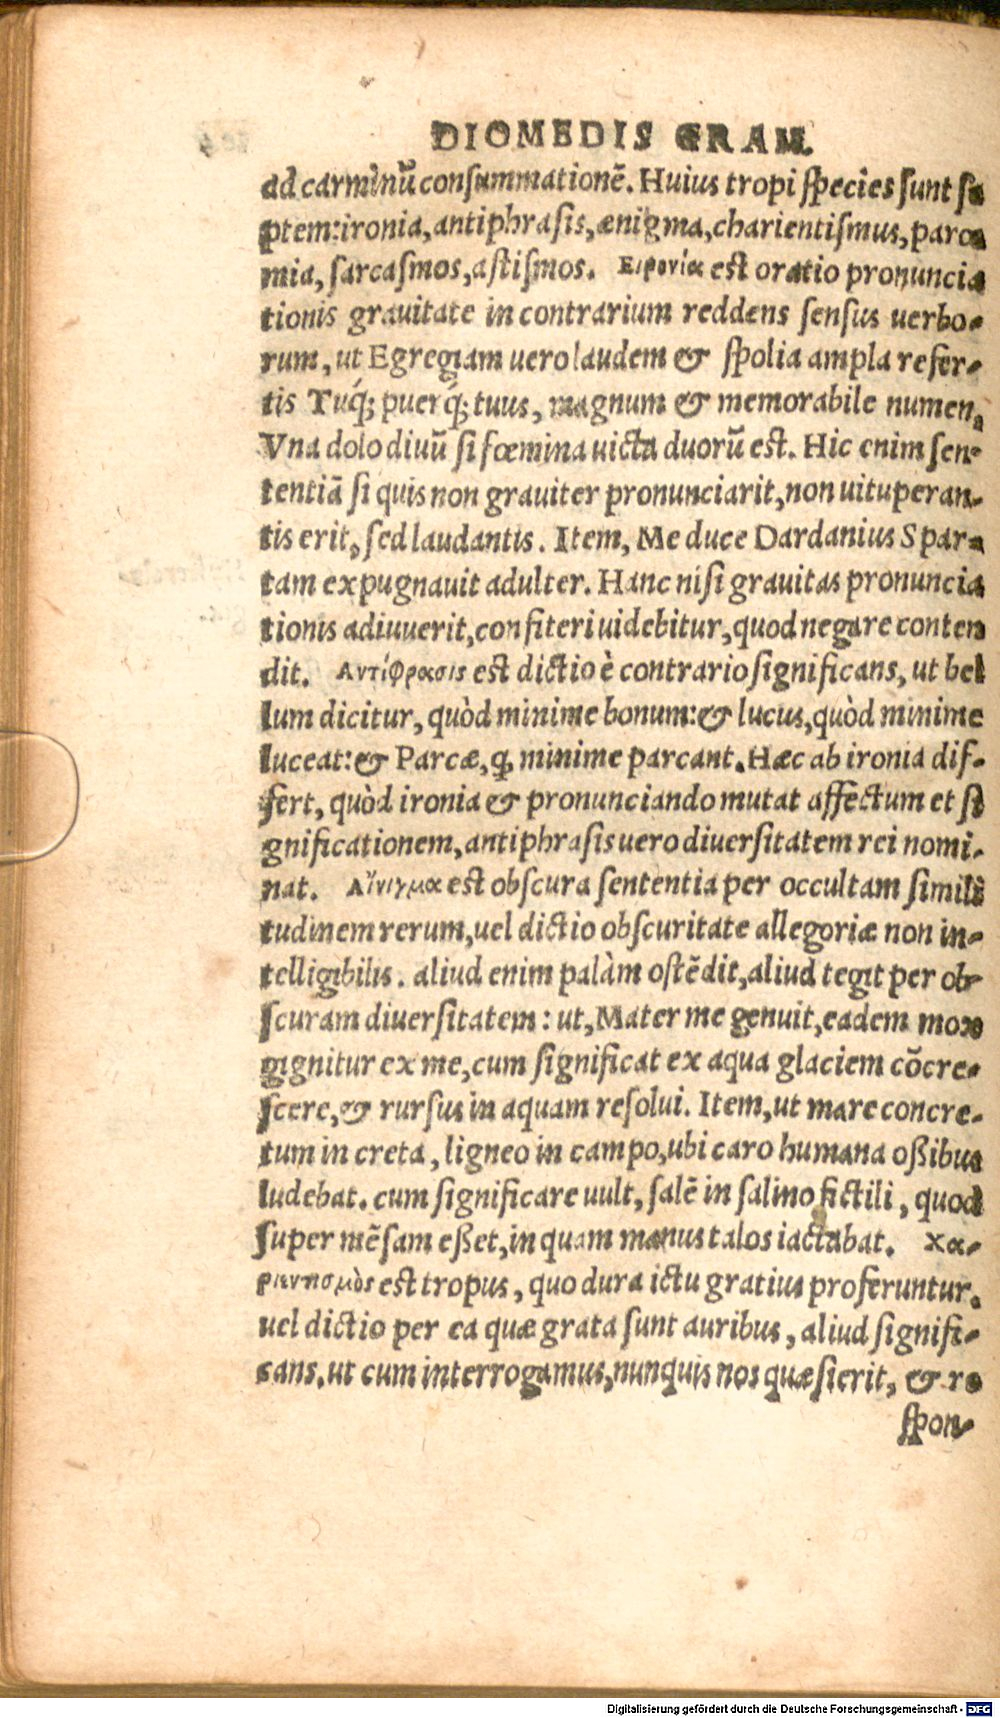 DIOMEDIS GRAM.
ad carminū consummationē. Huius tropi species sunt se
ptem: ironia, antiphrasis, ænigma, charientismus, parœ
mia, sarcasmos, astismos. Εἰρονία est oratio pronuncia
tionis grauitate in contrarium reddens sensus uerbo-
rum, ut Egregiam uero laudem & spolia ampla refer-
tis Tuq́; puerq́; tuus, magnum & memorabile numen,
Vna dolo diuū si fœmina uicta duorū est. Hic enim sen-
tentiā si quis non grauiter pronunciarit, non uituperan-
tis erit, sed laudantis. Item, Me duce Dardanius Spar-
tam expugnauit adulter. Hanc nisi grauitas pronuncia
tionis adiuuerit, confiteri uidebitur, quod negare conten
dit. Αντίφρασις est dictio è contrario significans, ut bel
lum dicitur, quòd minime bonum: & lucus, quòd minime
luceat: & Parcæ, ꝙ minime parcant. Hæc ab ironia dif-
fert, quòd ironia & pronunciando mutat affectum et si
gnificationem, antiphrasis uero diuersitatem rei nomi-
nat. Αἴνιγμα est obscura sententia per occultam simili
tudinem rerum, uel dictio obscuritate allegoriæ non in-
telligibilis. aliud enim palàm ostēdit, aliud tegit per ob-
scuram diuersitatem: ut, Mater me genuit, eadem mox
gignitur ex me, cum significat ex aqua glaciem cōcre-
scere, & rursus in aquam resolui. Item, ut mare concre-
tum in creta, ligneo in campo, ubi caro humana oßibus
ludebat. cum significare uult, salē in salino fictili, quod
super mēsam eßet, in quam manus talos iactabat. Χα-
ριεντισμὸς est tropus, quo dura ictu gratius proferuntur.
uel dictio per ea quæ grata sunt auribus, aliud signifi-
cans. ut cum interrogamus, nunquis nos quæsierit, & re
spon-
Digitalisierung gefördert durch die Deutsche Forschungsgemeinschaft - DFG